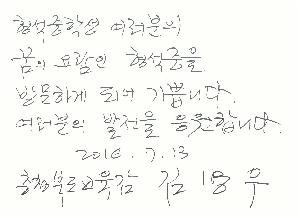 형석중학생 여러분의
꿈의 요람인 형석중을
방문하게 되어 기쁩니다.
여러분의 발전을 응원합니다.
2016. 7. 13
충청북도교육감 김병우